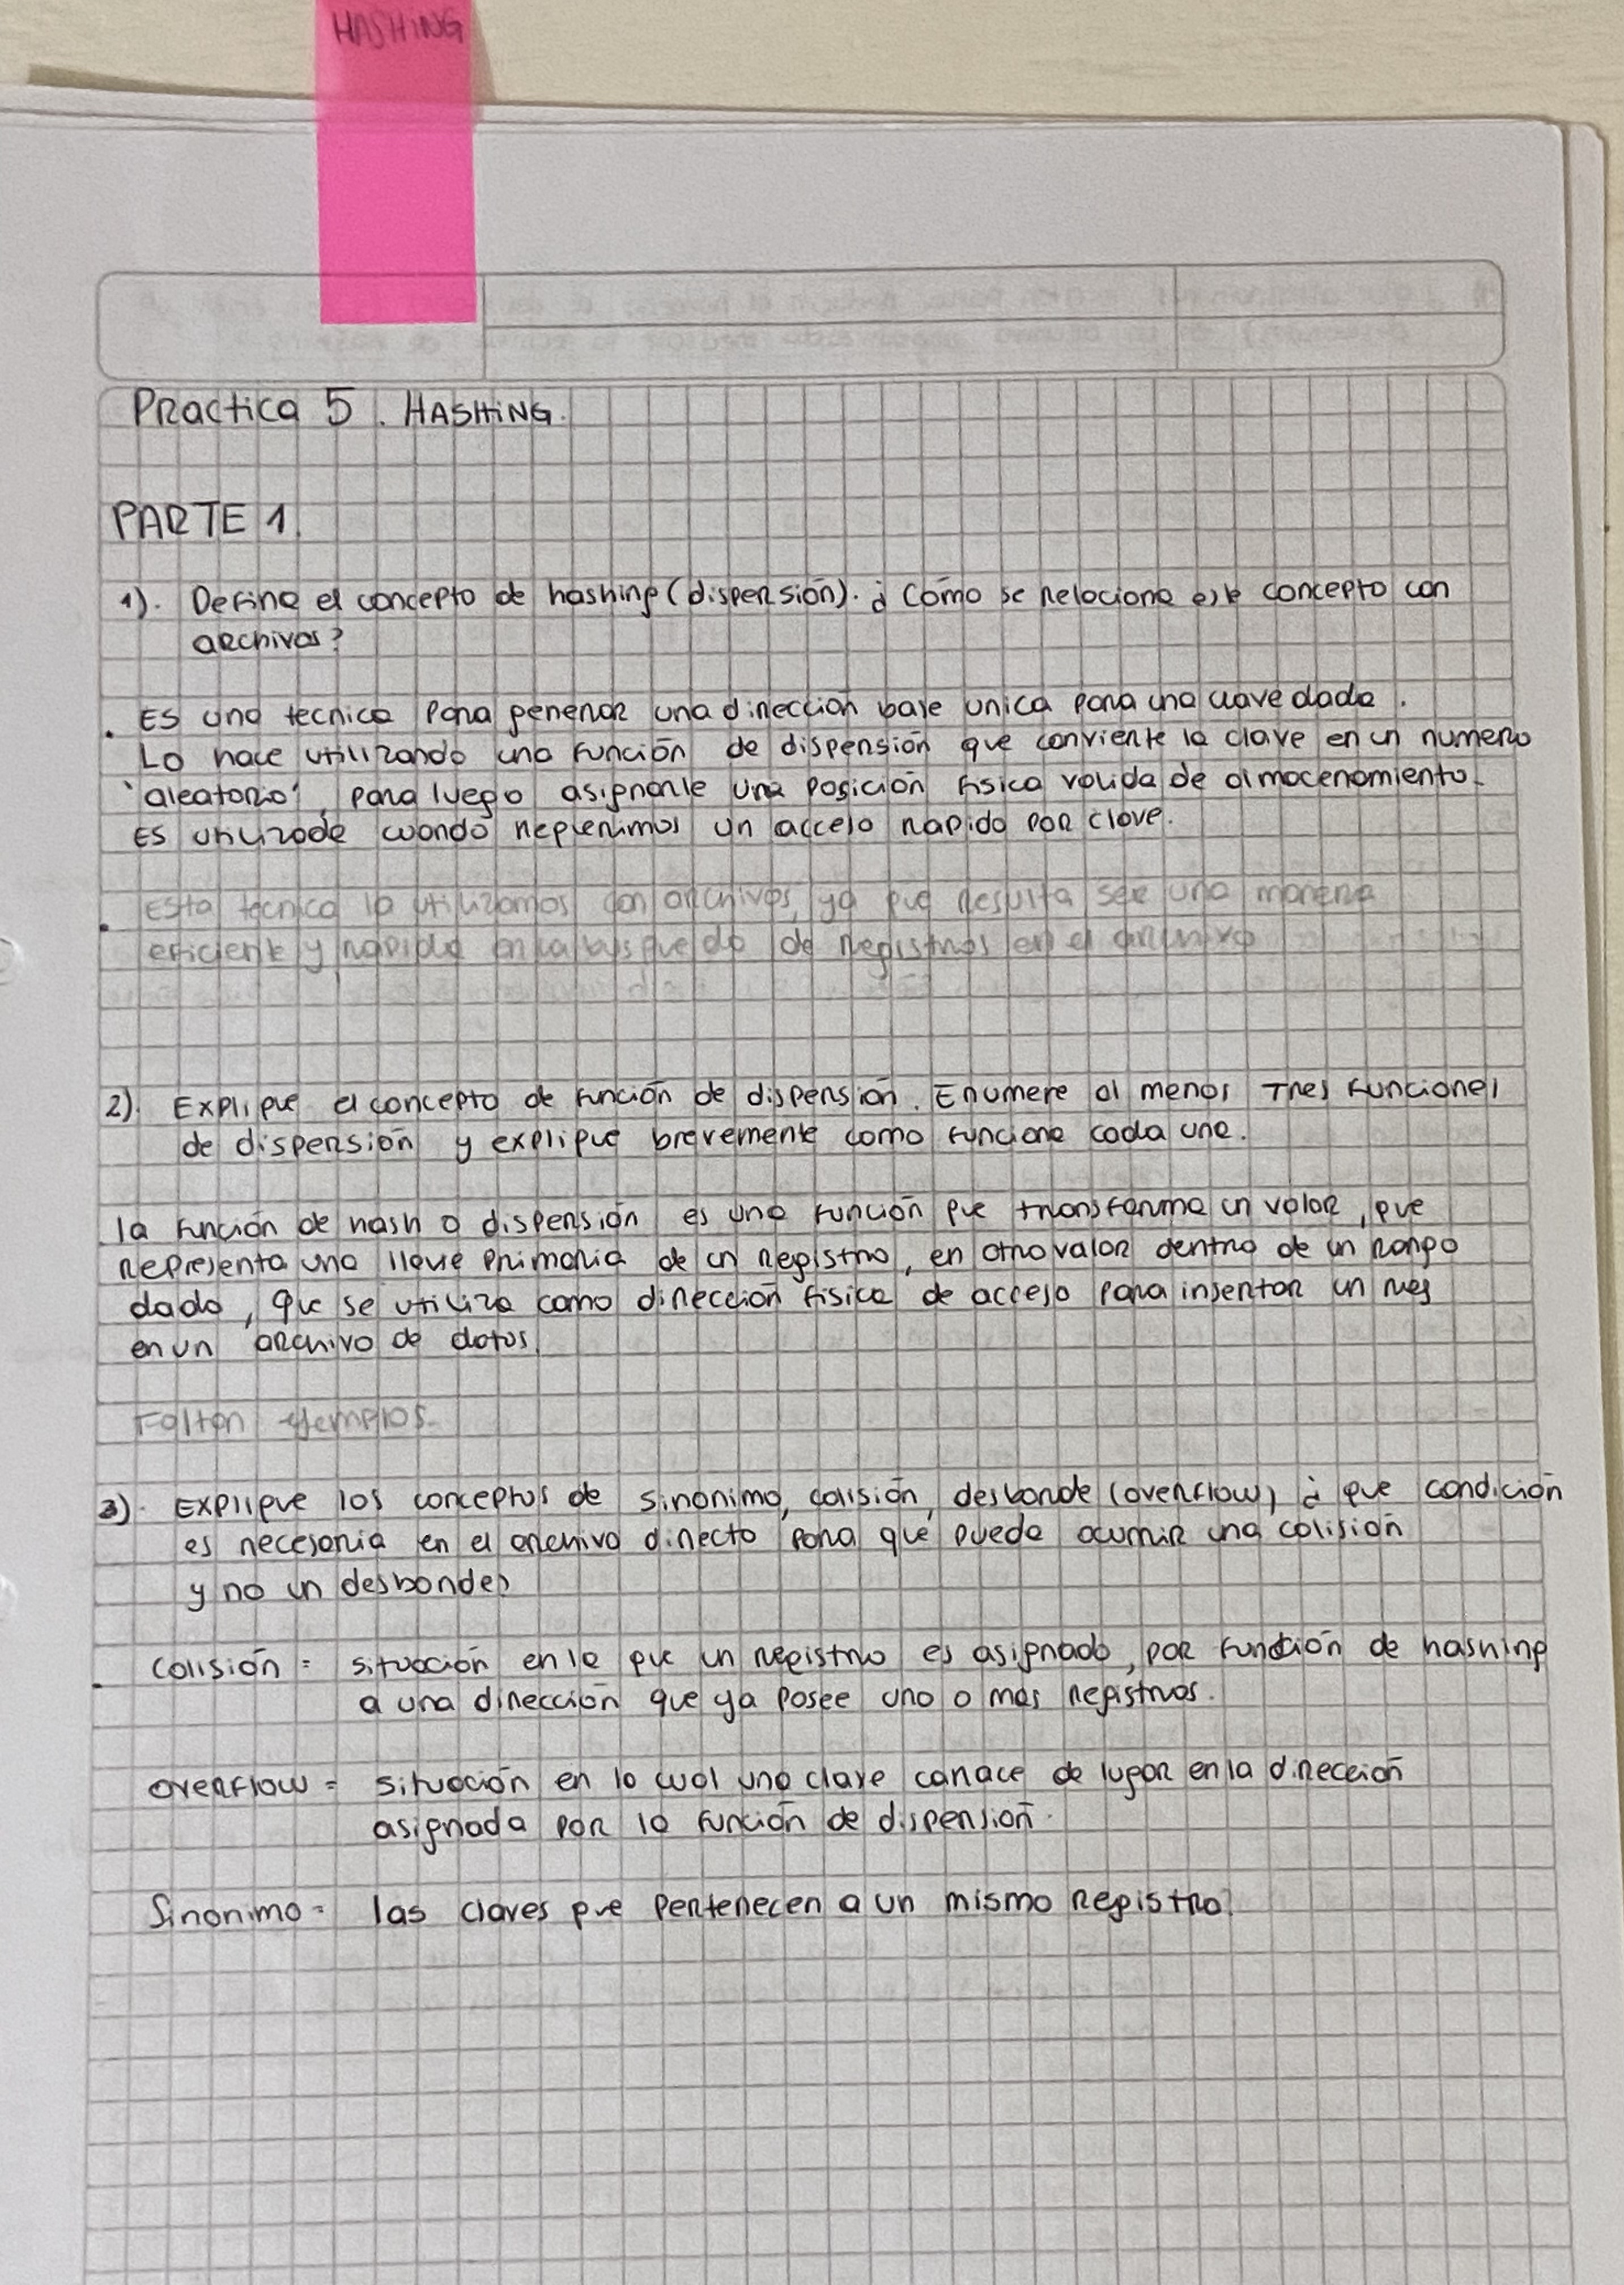 HASHING
Practica 5. HASHING.
PARTE 1.
1). Define el concepto de hashing (dispersión). ¿Cómo se relaciona este concepto con
archivos?
. Es una tecnica para generar una dirección base unica para una clave dada.
Lo hace utilizando una función de dispersión que convierte la clave en un numero
'aleatorio', para luego asignarle una posición fisica valida de almacenamiento.
Es utilizada cuando requerimos un acceso rapido por clave.
. Esta tecnica la utilizamos con archivos, ya que resulta ser una manera
eficiente y rapida en la busqueda de registros en el archivo
2). Explique el concepto de función de dispersión. Enumere al menos tres funciones
de dispersión y explique brevemente como funciona cada una.
la función de hash o dispersión es una función que transforma un valor, que
representa una llave primaria de un registro, en otro valor dentro de un rango
dado, que se utiliza como dirección fisica de acceso para insertar un reg
en un archivo de datos.
Faltan ejemplos.
3). Explique los conceptos de sinonimo, colisión, desborde (overflow) ¿que condición
es necesaria en el archivo directo para que pueda ocurrir una colisión
y no un desborde?
. Colisión = situación en la que un registro es asignado, por función de hashing
a una dirección que ya posee uno o mas registros.
Overflow = situación en la cual una clave carace de lugar en la dirección
asignada por la función de dispersión.
Sinonimo = las claves que pertenecen a un mismo registro.